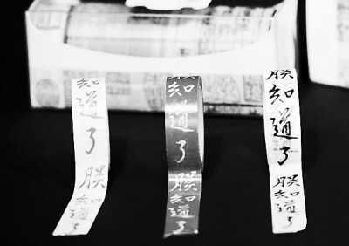 知道了朕知道
朕知道了朕知道了
朕知道了朕知道了